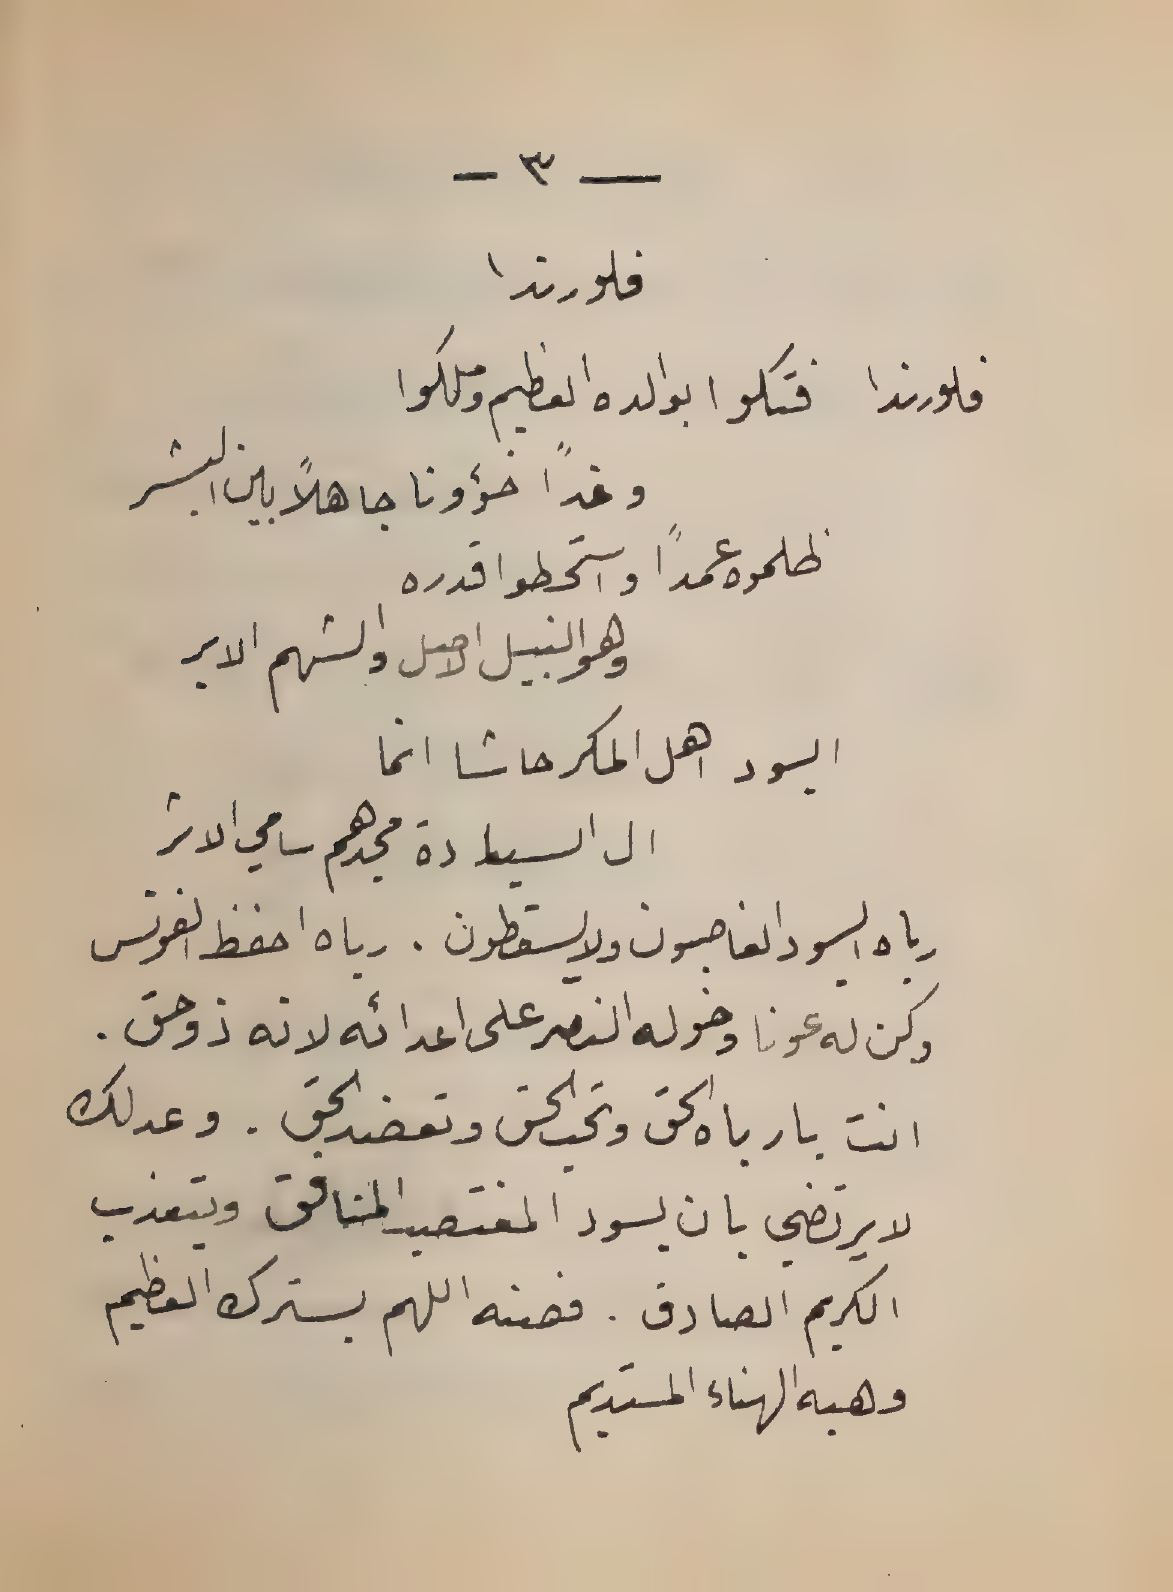 — ٣ —
فلورندا
فلورندا فتكوا بوالده العظيم وملكوا
وغداً خؤونا جاهلاً بين البشر
ظلموه عمداً واستحطوا قدره
وهو النبيل الاصيل والشهم الابر
ايسود اهل المكر حاشا انما
ال السيادة مجدهم سامي الاثر
رباه ايسود الغاصبون ولا يسقطون . رباه احفظ الفونس
وكن له عونا وخوله النصر على اعدائه لانه ذو حق .
انت يا رباه الحق وتحب الحق وتعضد الحق . وعدلك
لا يرتضي بان يسود المغتصب المنافق ويتعذب
الكريم الصادق . فصنه اللهم بسترك العظيم
وهبه الهناء المستديم